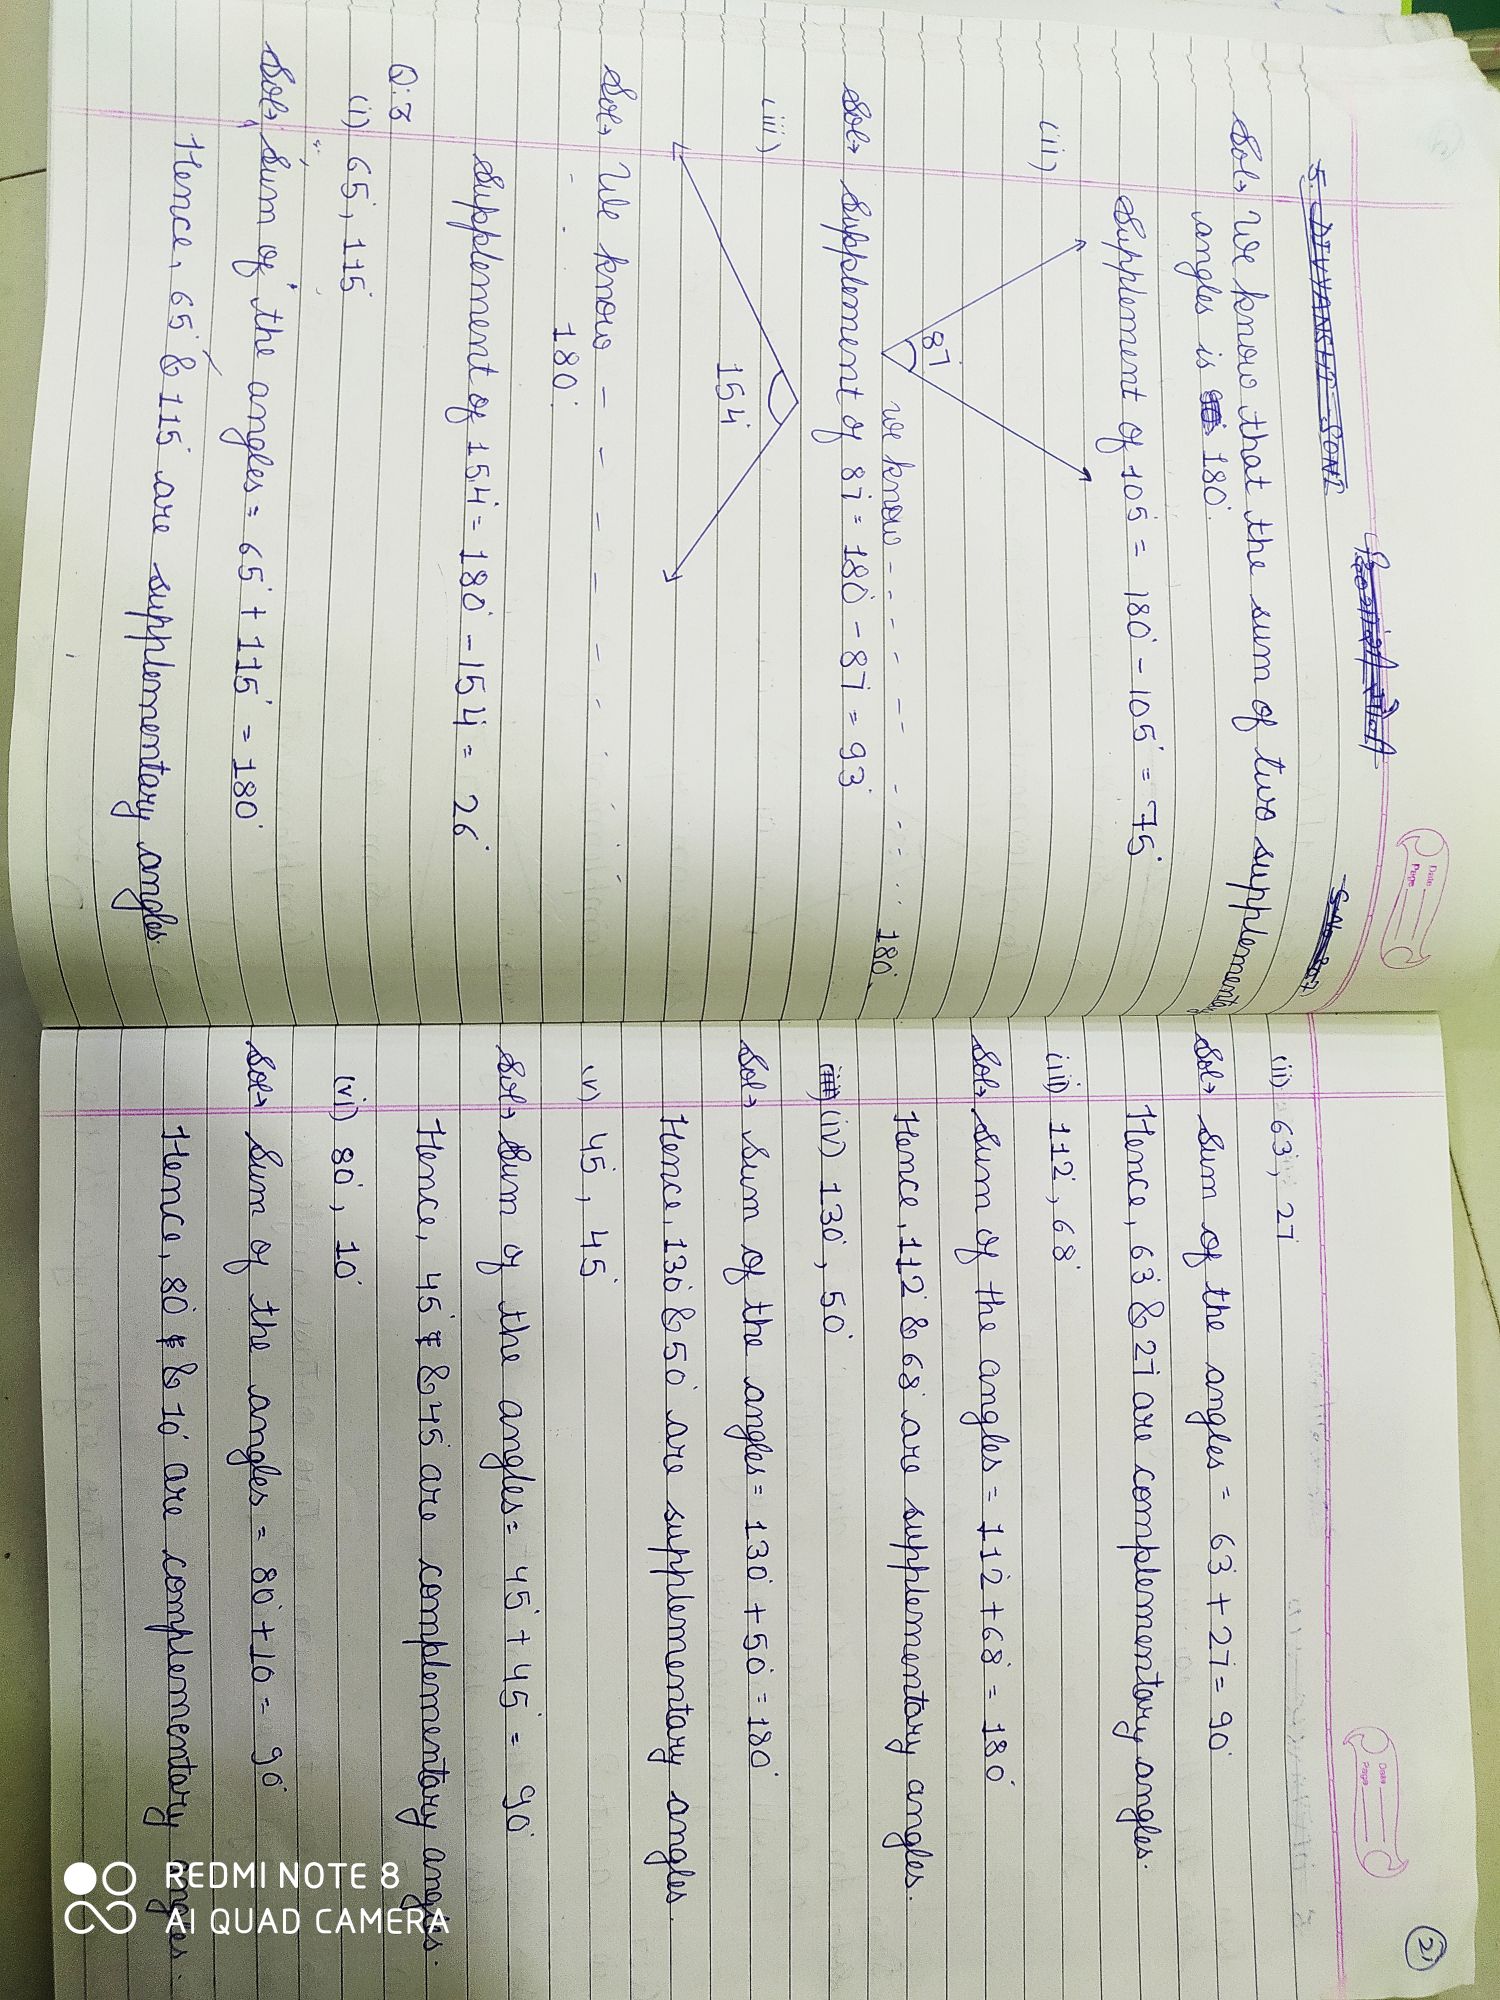 5. DIVYANSHI - SONI
Date
Page
Sol→ We know that the sum of two supplementary
angles is 180°.
Supplement of 105° = 180° - 105° = 75°
(ii)
87°
we know - - - - - - - - - - 180°.
Sol→ Supplement of 87° = 180° - 87° = 93°
(iii)
154°
Sol→ We know - - - - - - - - -
180°.
Supplement of 154° = 180° - 154° = 26°
Q.3
(i) 65°, 115°
Sol→ Sum of the angles = 65° + 115° = 180°
Hence, 65° & 115° are supplementary angles.
21
Date
Page
(ii) 63°, 27°
Sol→ Sum of the angles = 63° + 27° = 90°
Hence, 63° & 27° are complementary angles.
(iii) 112°, 68°
Sol→ Sum of the angles = 112° + 68° = 180°
Hence, 112° & 68° are supplementary angles.
(iv) 130°, 50°
Sol→ Sum of the angles = 130° + 50° = 180°
Hence, 130° & 50° are supplementary angles.
(v) 45°, 45°
Sol→ Sum of the angles = 45° + 45° = 90°
Hence, 45° & 45° are complementary angles.
(vi) 80°, 10°
Sol→ Sum of the angles = 80° + 10° = 90°
Hence, 80° & 10° are complementary angles.
REDMI NOTE 8
AI QUAD CAMERA